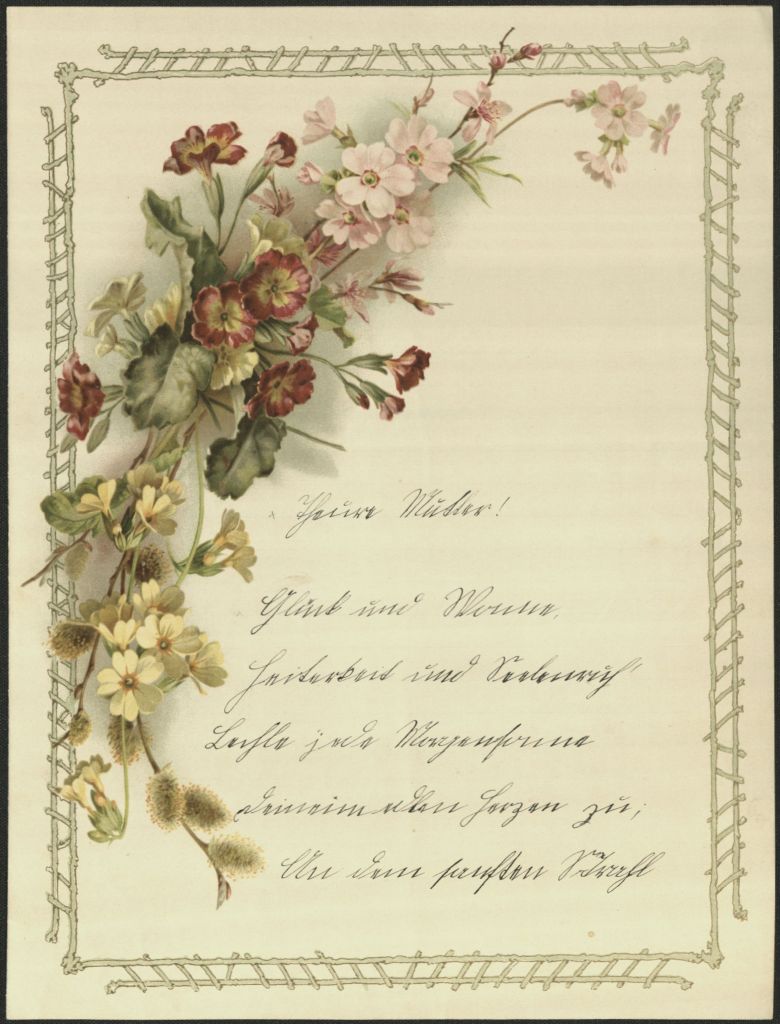 Theure Mutter!
Glück und Wonne,
Heiterkeit und Seelenruh'
Lächle jede Morgensonne
Deinem edlen Herzen zu;
An dem sanften Strahl